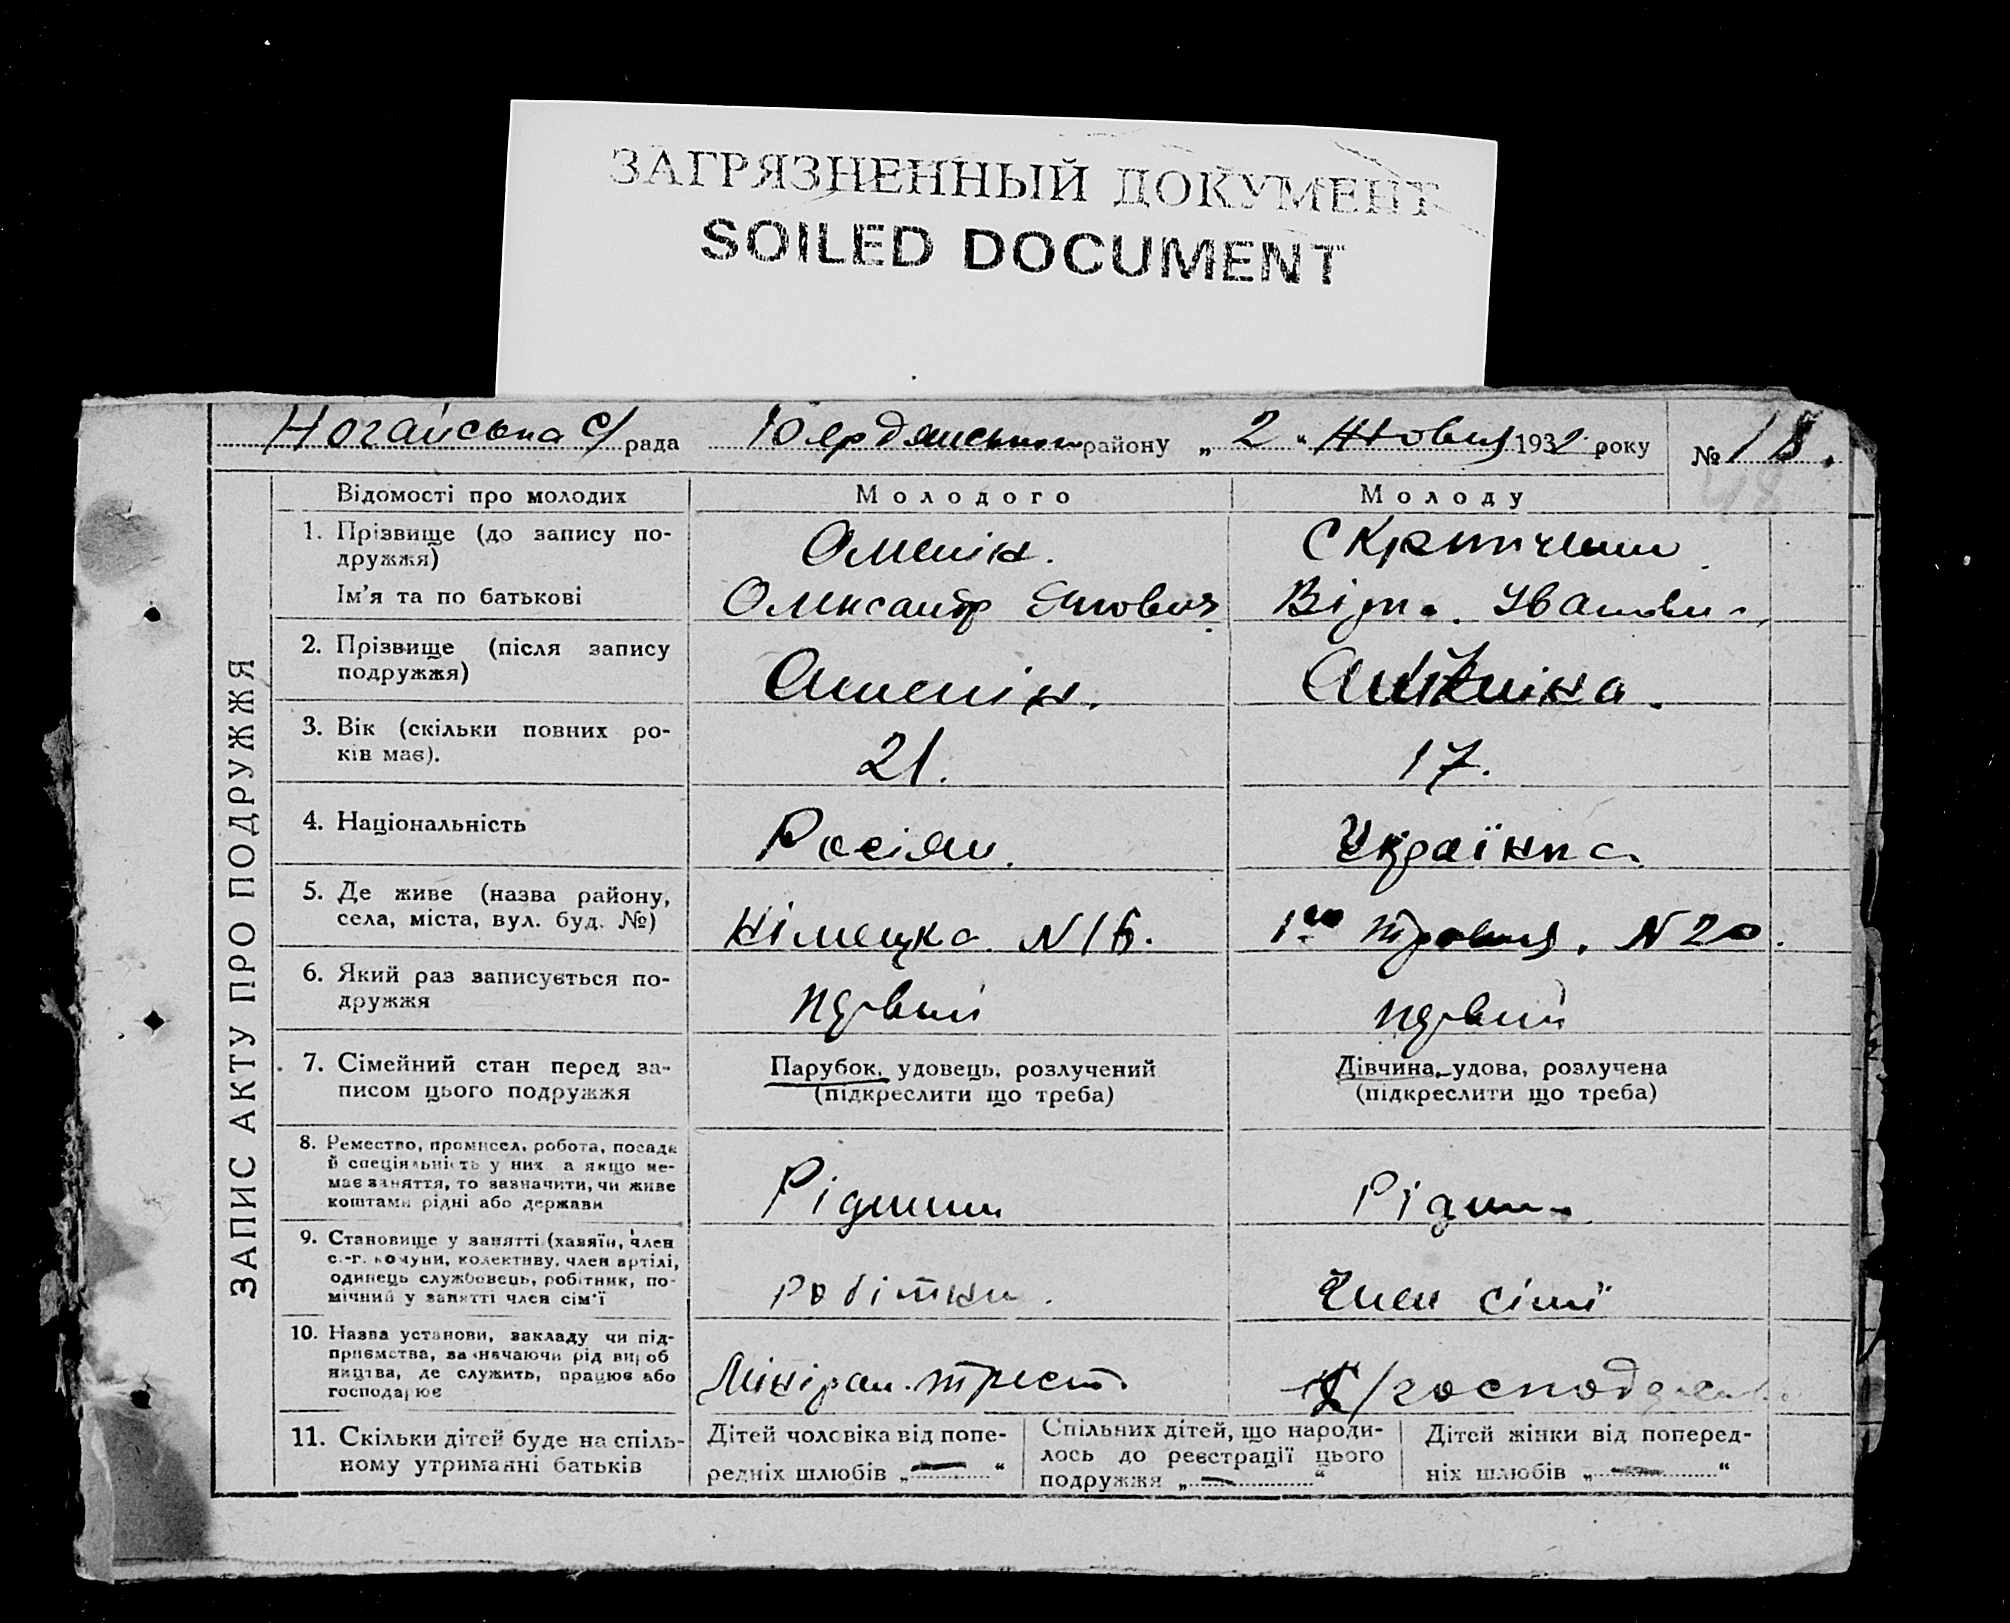 ЗАГРЯЗНЕННЫЙ ДОКУМЕНТ
SOILED DOCUMENT
Ногайська с/рада Бердянського району „2“ Жовтня 1932 року № 18.
ЗАПИС АКТУ ПРО ПОДРУЖЖЯ
Відомості про молодих Молодого Молоду
1. Прізвище (до запису по-
дружжя)
Ім'я та по батькові
Олександр
2. Прізвище (після запису
подружжя)
3. Вік (скільки повних ро-
ків має).
21. 17.
4. Національність
Росіян. Українка
5. Де живе (назва району,
села, міста, вул. буд. №)
Німецка N 16. 1го травня, N 20.
6. Який раз записується по-
дружжя
первий первий
7. Сімейний стан перед за-
писом цього подружжя
Парубок, удовець, розлучений Дівчина, удова, розлучена
(підкреслити що треба) (підкреслити що треба)
8. Ремество, промисел, робота, посада
й спеціяльність у них а якщо не-
має заняття, то зазначити, чи живе
коштами рідні або держави
9. Становище у занятті (хазяїн, член
с.-г. комуни, колективу, член артілі,
одинець службовець, робітник, по-
мічний у занятті член сім'ї
Член сімї
10. Назва установи, закладу чи під-
приємства, зазначаючи рід вироб
ництва, де служить, працює або
господарює
трест
11. Скільки дітей буде на спіль-
ному утриманні батьків
Дітей чоловіка від попе-
редніх шлюбів „—“
Спільних дітей, що народи-
лось до реєстрації цього
подружжя „—“
Дітей жінки від поперед-
ніх шлюбів „—“